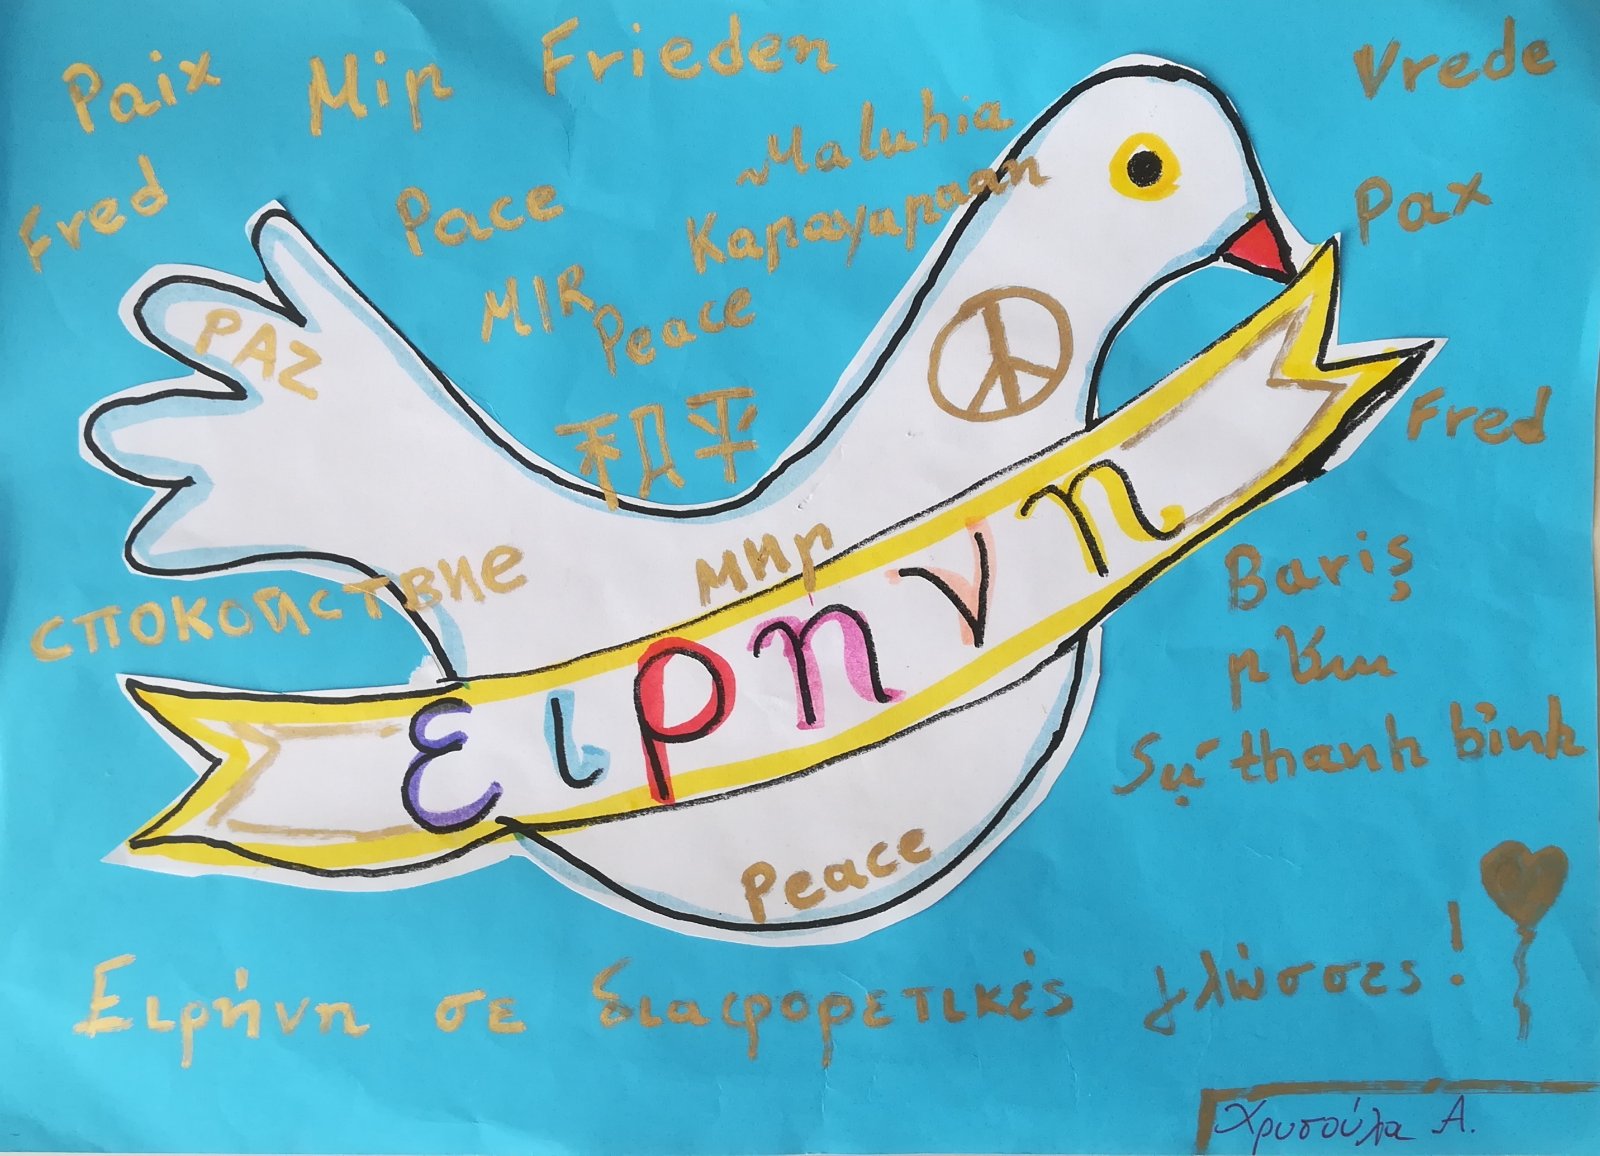 Paix Mip Frieden Vrede
Fred Pace Maluhia Pax
Kapayapaan
MIR Peace
PAZ
和平 Fred
спокойствие мир
ειρηνη
Bariş
Sự thanh bình
Peace
Ειρήνη σε διαφορετικές γλώσσες!
Χρυσούλα Α.